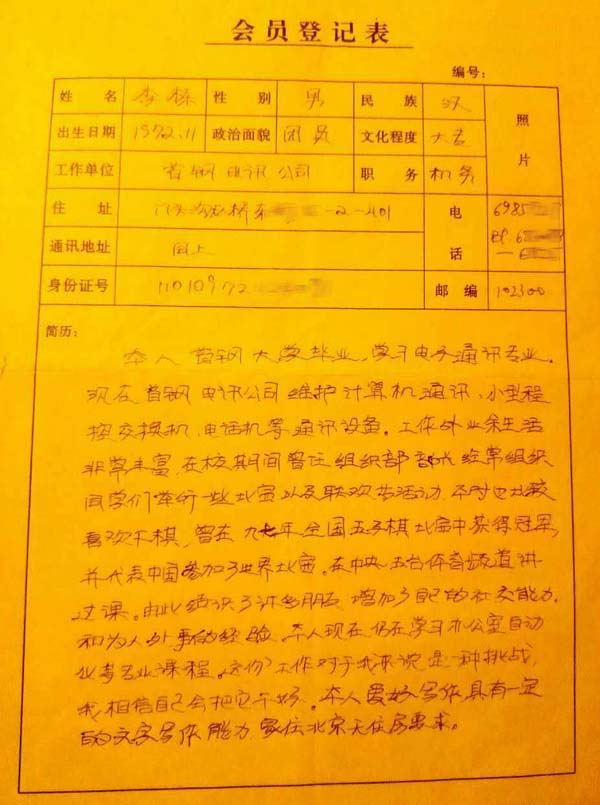 会员登记表
编号:
姓 名 李栋 性 别 男 民 族 汉 照片
出生日期 1972.11 政治面貌 团员 文化程度 大专
工作单位 首钢电讯公司 职 务 机务
住 址 门头沟石桥东 -2-401 电话 6985
通讯地址 同上 BP 6
身份证号 11010972 邮 编 102300
简历:
本人首钢大学毕业,学习电子通讯专业.
现在首钢电讯公司维护计算机通讯、小型程
控交换机、电话机等通讯设备。工作外业余生活
非常丰富,在校期间曾任组织部部长经常组织
同学们举行一些比赛以及联欢等活动,本时也比较
喜欢下棋,曾在九七年全国五子棋比赛中获得冠军,
并代表中国参加了世界比赛。在中央五台体育频道讲
过课。由此结识了许多朋友 增加了自己的社交能力,
和为人处事的经验。本人现在仍在学习办公室自动
化专业课程。这份工作对于我来说是一种挑战,
我相信自己会把它干好。本人爱好写作,具有一定
的文字写作能力,家住北京无住房要求。